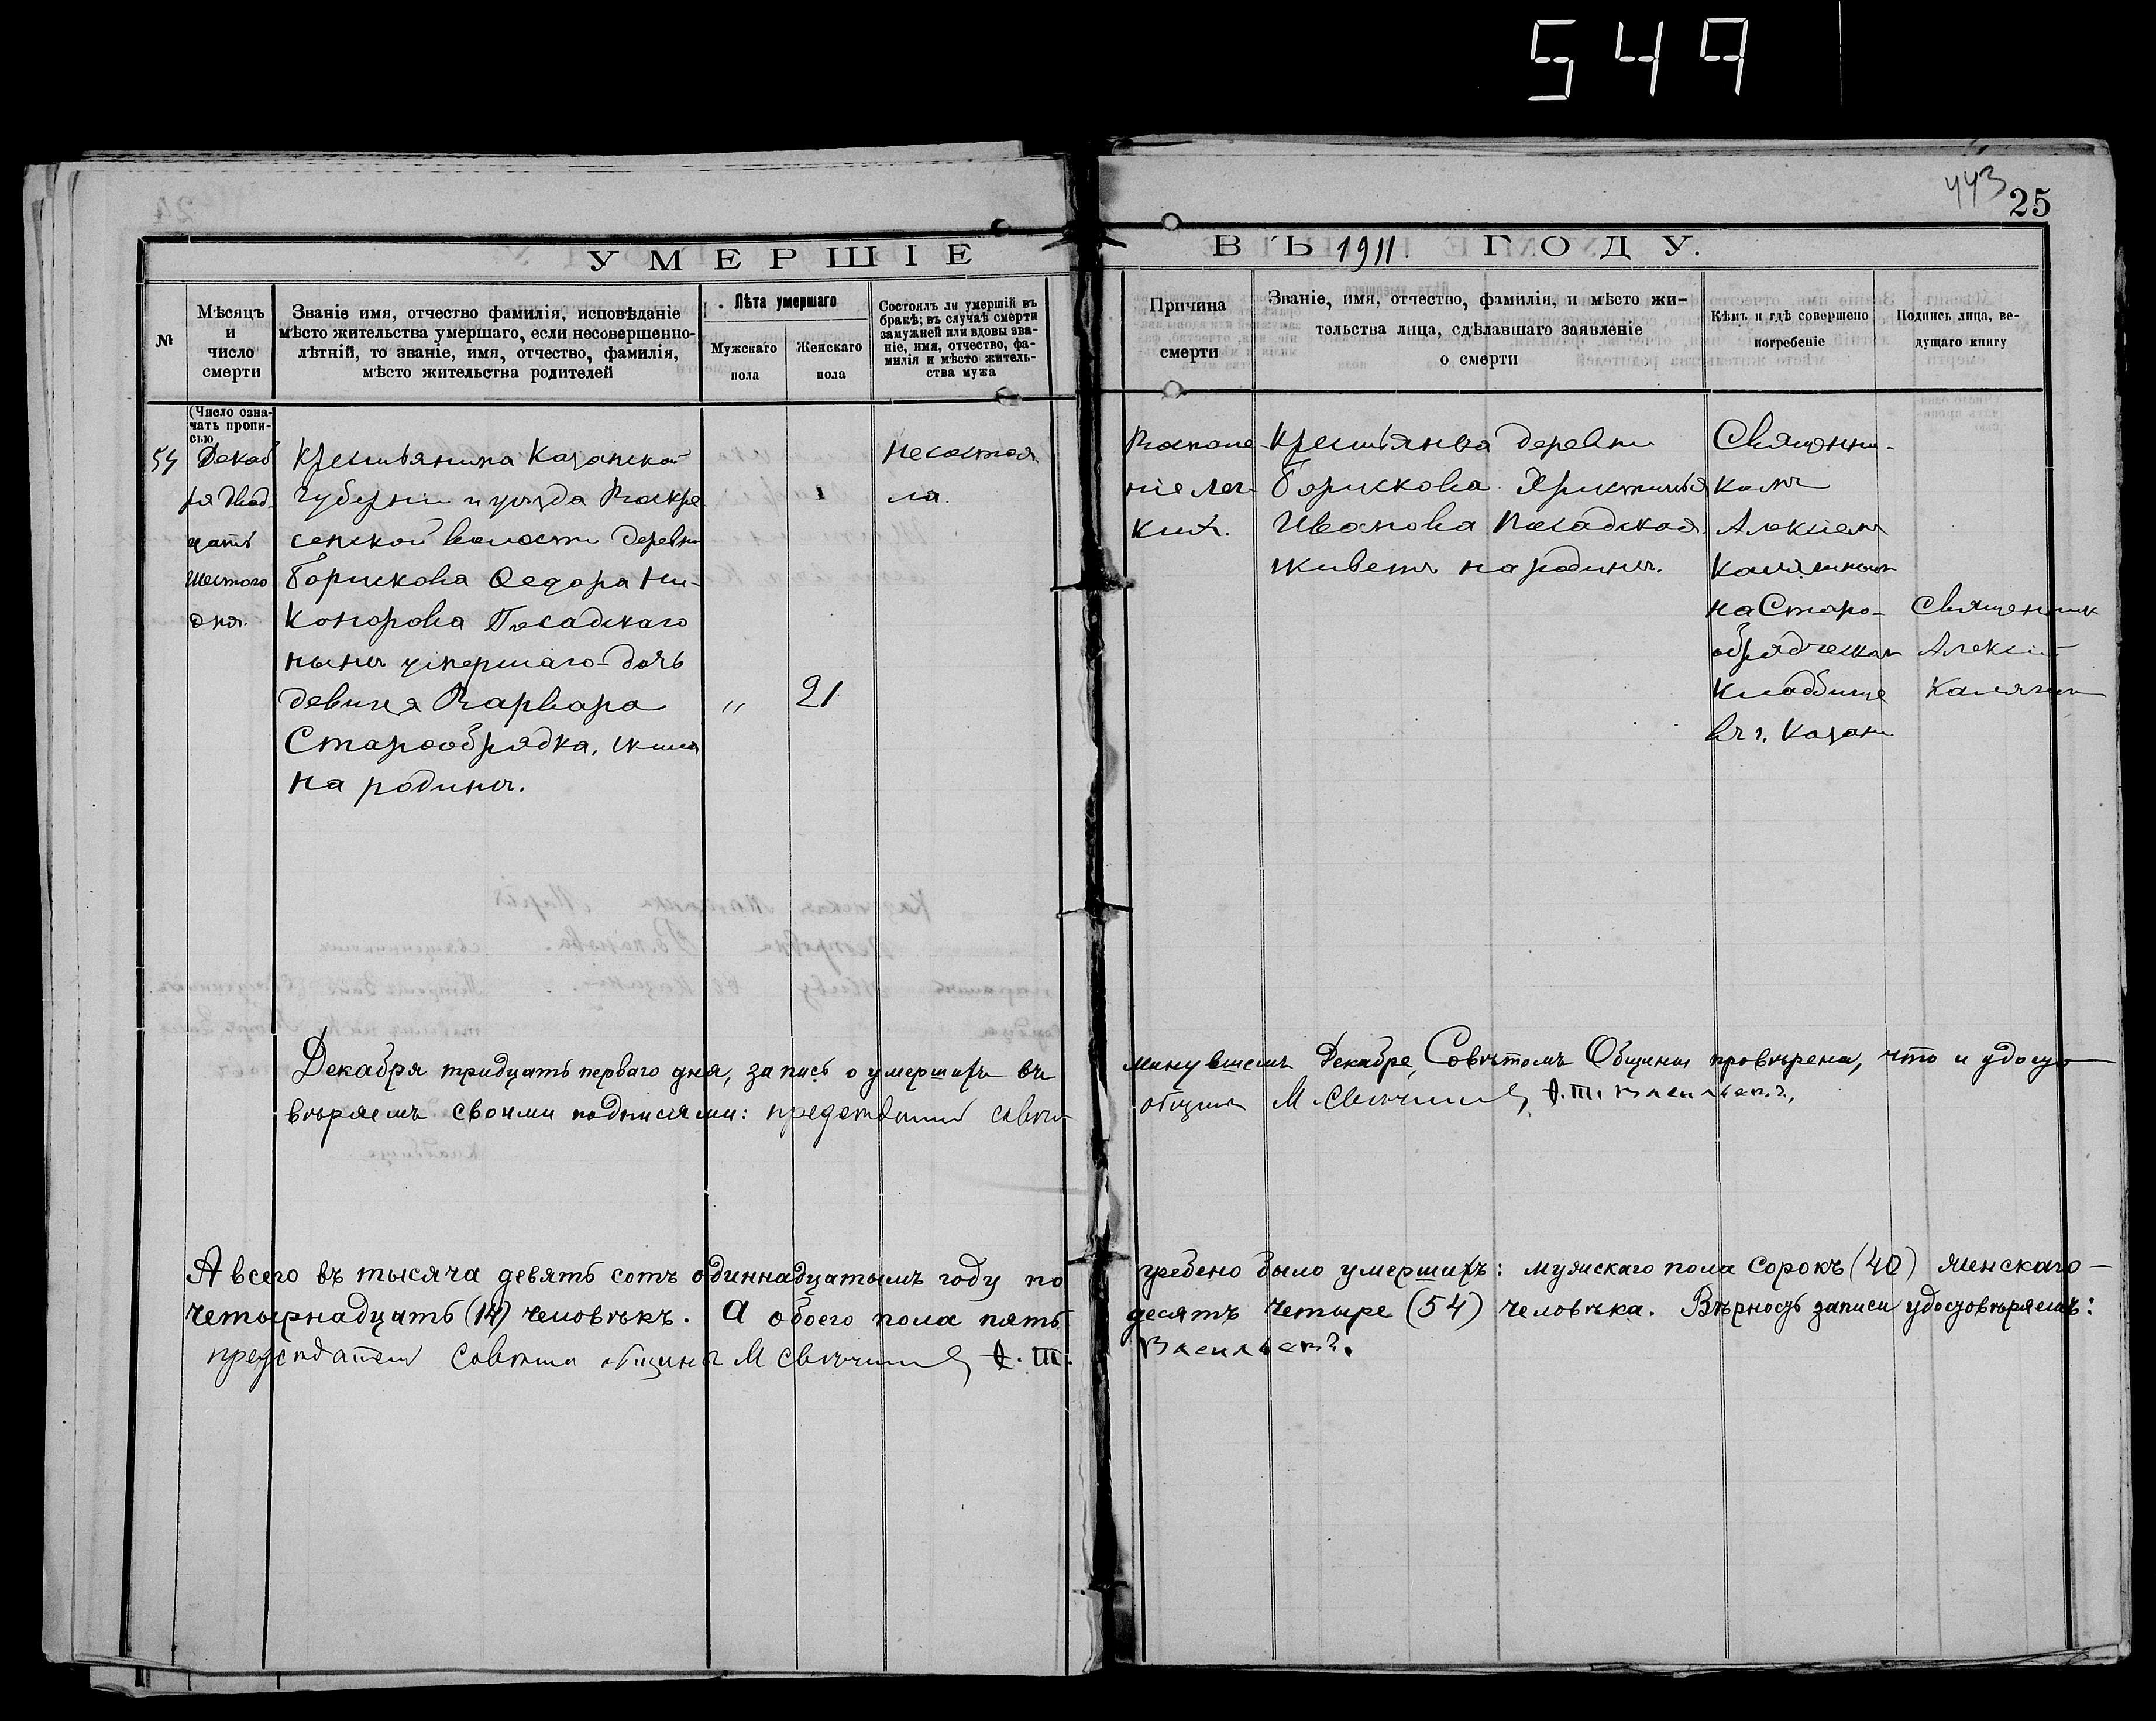 549
443
25
УМЕРШІЕ ВЪ 1911. ГОДУ.
№
Мѣсяцъ
и
число
смерти
Званіе имя, отчество фамилія, исповѣданіе
мѣсто жительства умершаго, если несовершенно-
лѣтній, то званіе, имя, отчество, фамилія,
мѣсто жительства родителей
Лѣта умершаго
Мужскаго
пола
Женскаго
пола
Состоялъ ли умершій въ
бракѣ; въ случаѣ смерти
замужней или вдовы зва-
ніе, имя, отчество, фа-
милія и мѣсто житель-
ства мужа
Причина
смерти
Званіе, имя, отчество, фамилія, и мѣсто жи-
тельства лица, сдѣлавшаго заявленіе
о смерти
Кѣмъ и гдѣ совершено
погребеніе
Подпись лица, ве-
дущаго книгу
(Число озна-
чать пропи-
сью
54
Декаб
ря двад-
цать
шестого
дня.
Крестьянина Казанской
губерніи и уѣзда Воскре
сенской волости деревни
Борискова Ѳедора Ни-
конорова Посадскаго
нынѣ умершаго дочь
девица Варвара
Старообрядка, жила
на родинѣ.
"
21
Несостоя
ла.
Воспале-
ніе лег
кихъ.
Крестьянка деревни
Борискова Христинья
Иванова Посадская
живетъ на родинѣ.
Священни-
комъ
Алексіем
Калягинымъ
на Старо-
обрядческом
кладбище
въ г. Казани
Священник
Алексій
Калягин
Декабря тридцать перваго дня, запись о умершихъ въ минувшемъ Декабре, Совѣтомъ Общины провѣрена, что и удосто
вѣряемъ своими подписями: председатель совѣта общины М Свѣчин
А всего въ тысяча девять сотъ одиннадцатымъ году по гребено было умершихъ: мужскаго пола сорокъ (40) женскаго-
четырнадцать (14) человѣкъ. А обоего пола пять десятъ четыре (54) человѣка. Вѣрность записи удостовѣряемъ:
председатель Совета общины М Свѣчин